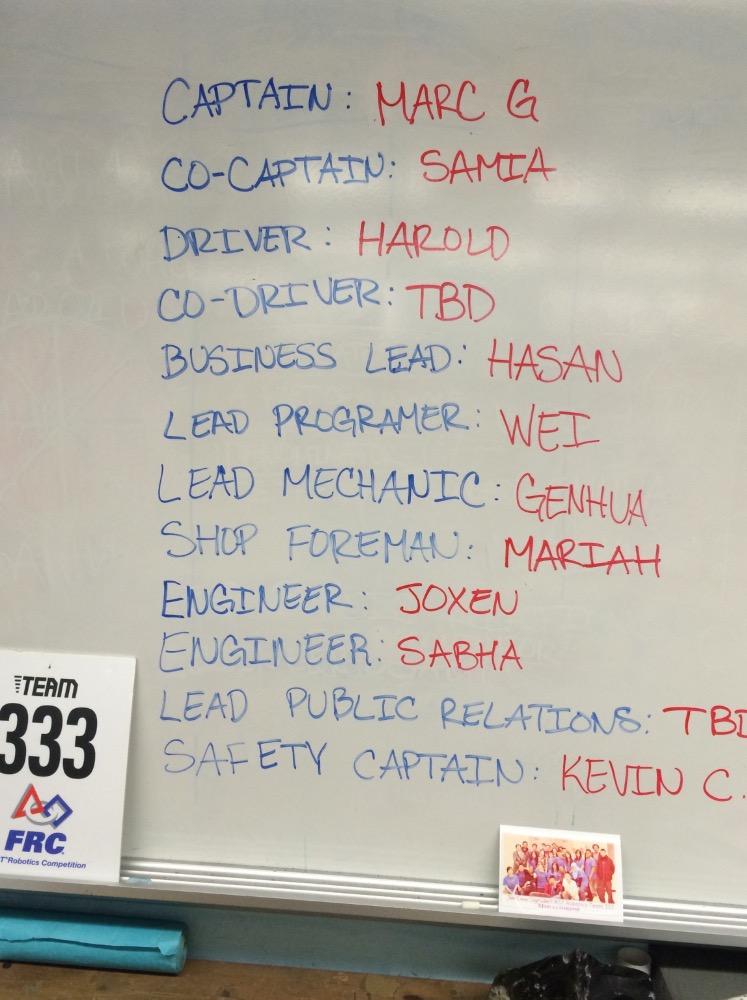 CAPTAIN: MARC G
CO-CAPTAIN: SAMIA
DRIVER: HAROLD
CO-DRIVER: TBD
BUSINESS LEAD: HASAN
LEAD PROGRAMER: WEI
LEAD MECHANIC: GENHUA
SHOP FOREMAN: MARIAH
ENGINEER: JOXEN
ENGINEER: SABHA
LEAD PUBLIC RELATIONS: TBD
SAFETY CAPTAIN: KEVIN C.
TEAM
333
FRC
Robotics Competition